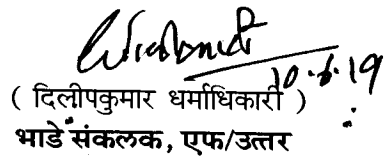 10.6.19
( दिलीपकुमार धर्माधिकारी )
भाडे संकलक, एफ/उत्तर